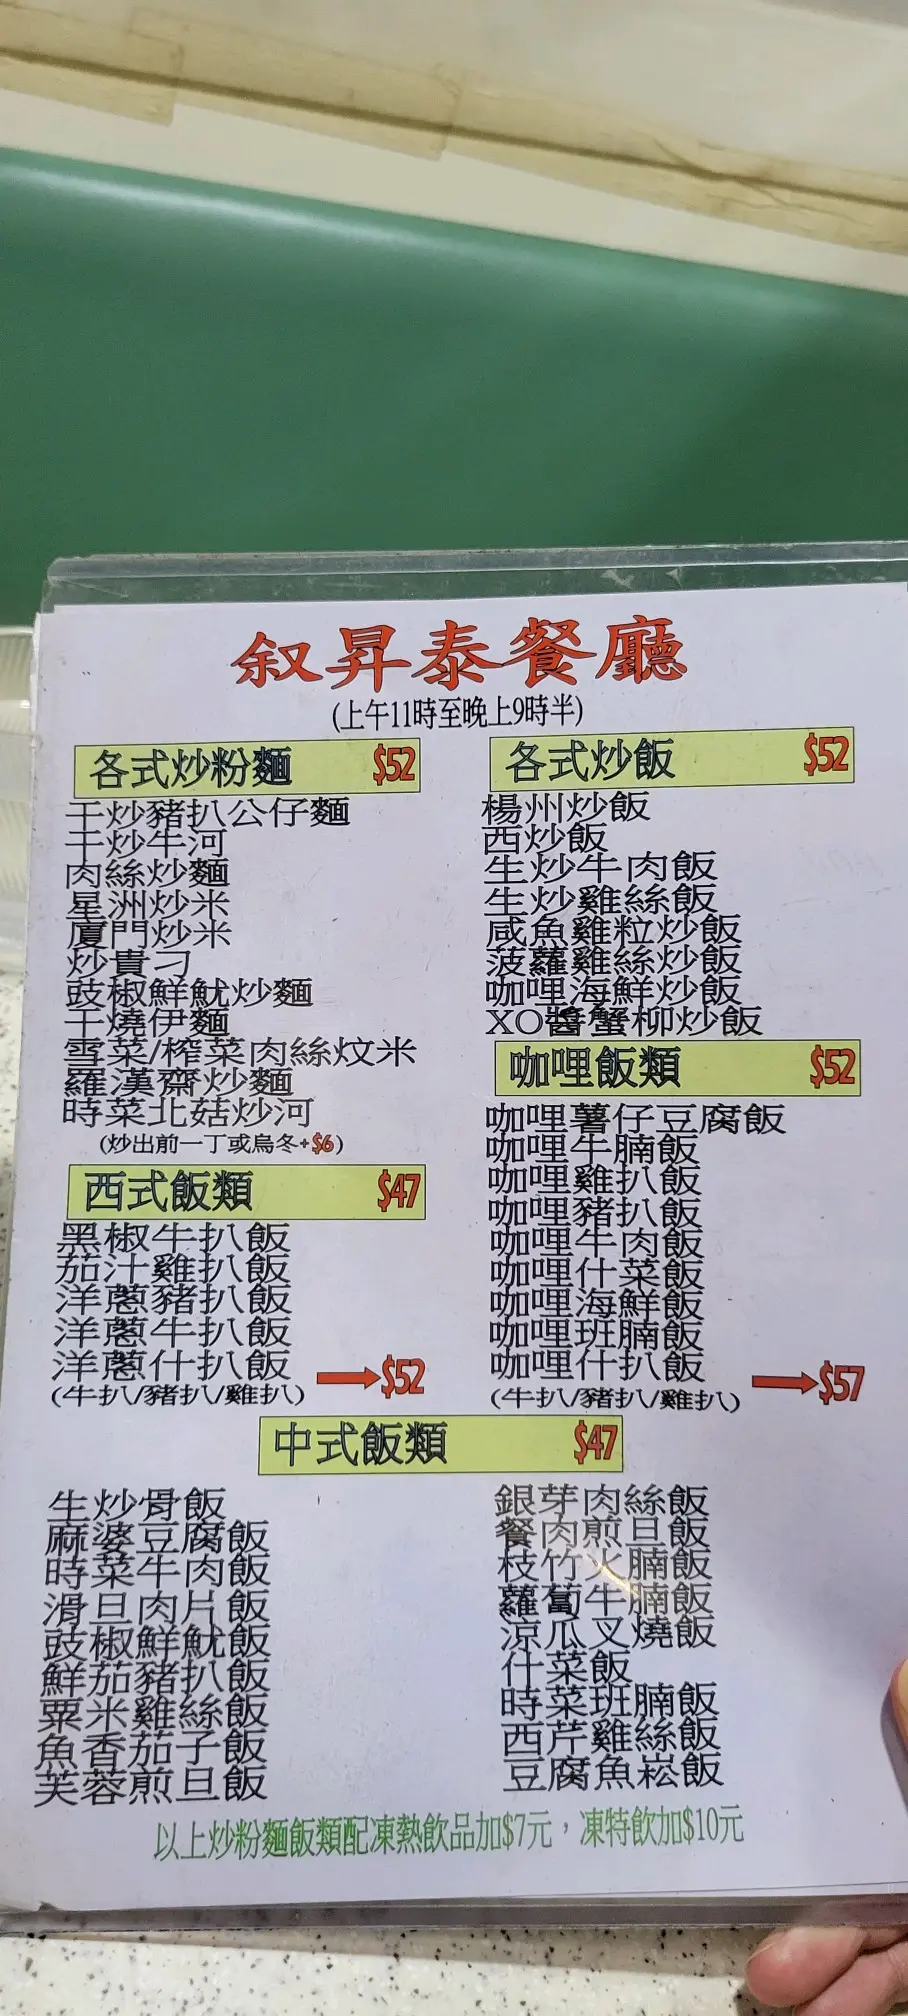 叙昇泰餐廳
(上午11時至晚上9時半)
各式炒粉麵 $52
干炒豬扒公仔麵
干炒牛河
肉絲炒麵
星洲炒米
廈門炒米
炒貴刁
豉椒鮮魷炒麵
干燒伊麵
雪菜/榨菜肉絲炆米
羅漢齋炒麵
時菜北菇炒河
(炒出前一丁或烏冬+$6)
西式飯類 $47
黑椒牛扒飯
茄汁雞扒飯
洋蔥豬扒飯
洋蔥牛扒飯
洋蔥什扒飯 $52
(牛扒/豬扒/雞扒)
各式炒飯 $52
楊州炒飯
西炒飯
生炒牛肉飯
生炒雞絲飯
咸魚雞粒炒飯
菠蘿雞絲炒飯
咖哩海鮮炒飯
XO醬蟹柳炒飯
咖哩飯類 $52
咖哩薯仔豆腐飯
咖哩牛腩飯
咖哩雞扒飯
咖哩豬扒飯
咖哩牛肉飯
咖哩什菜飯
咖哩海鮮飯
咖哩班腩飯
咖哩什扒飯 $57
(牛扒/豬扒/雞扒)
中式飯類 $47
生炒骨飯
麻婆豆腐飯
時菜牛肉飯
滑旦肉片飯
豉椒鮮魷飯
鮮茄豬扒飯
粟米雞絲飯
魚香茄子飯
芙蓉煎旦飯
銀芽肉絲飯
餐肉煎旦飯
枝竹火腩飯
蘿蔔牛腩飯
涼瓜叉燒飯
什菜飯
時菜班腩飯
西芹雞絲飯
豆腐魚崧飯
以上炒粉麵飯類配凍熱飲品加$7元，凍特飲加$10元